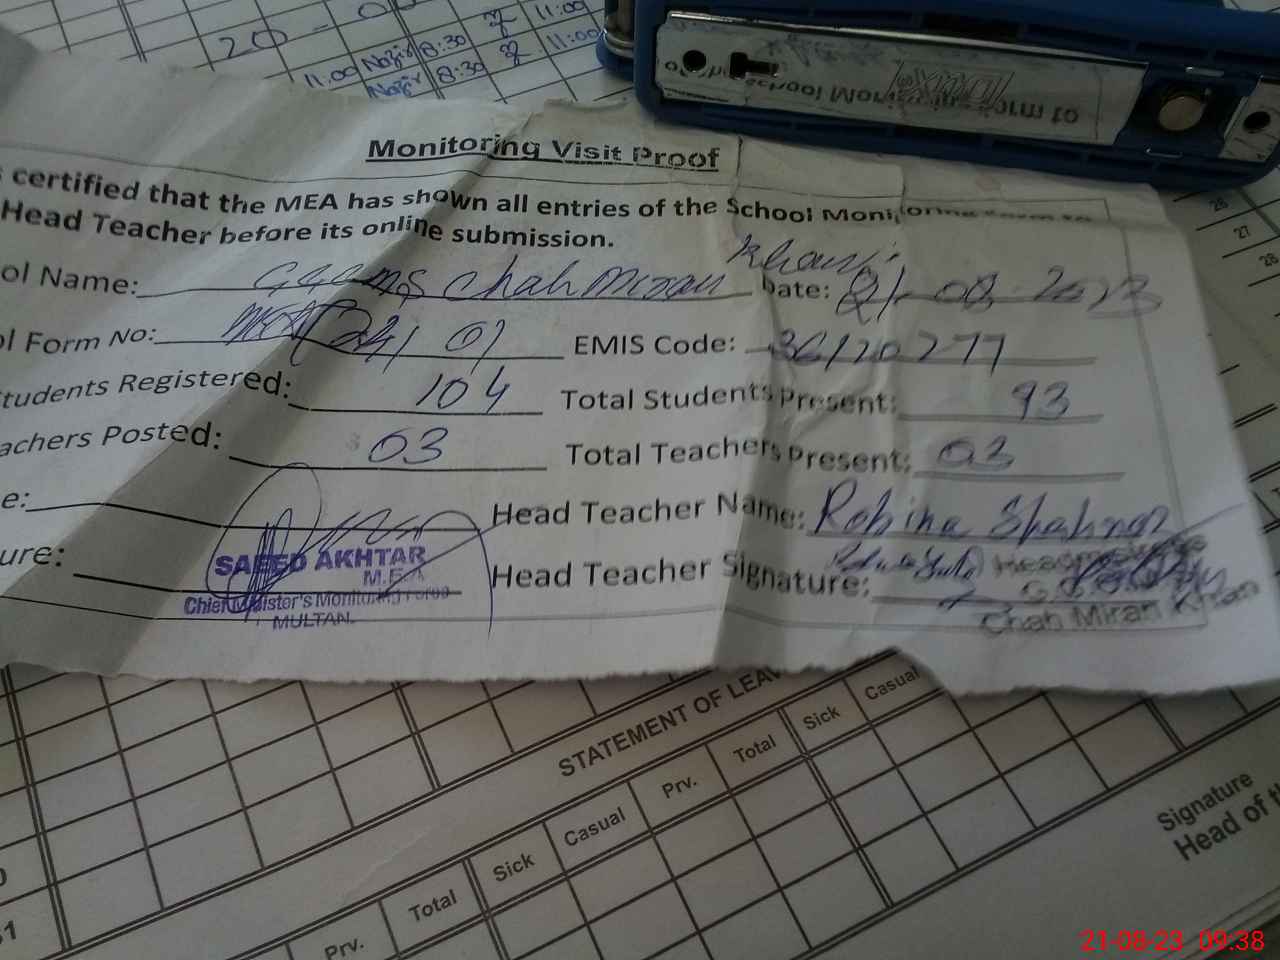 20
11:00
Nazir 8:30 11:00
Nazir 8:30 11:00
Monitoring Visit Proof
certified that the MEA has shown all entries of the School Monitoring Form to
Head Teacher before its online submission.
ol Name: Chah Miran Khan Date: 21-08-2023
ol Form No: 01 EMIS Code: 36120277
tudents Registered: 104 Total Students Present: 93
achers Posted: 03 Total Teachers Present: 03
e: Head Teacher Name: Robina Shahnaz
ure: Head Teacher Signature:
SAEED AKHTAR
M.E.A
Chief Minister's Monitoring Force
MULTAN.
Chah Miran Khan
26
27
28
STATEMENT OF LEAV
Prv. Total Sick Casual
Prv. Total Sick Casual
Signature
Head of th
31
21-08-23 09:38